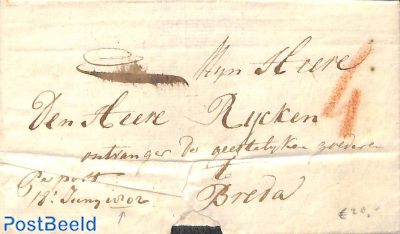 Myn Heere
Den Heere Rycken
ontvanger der geestelyken goederen
t
Breda
Per post
18' Juny 1802
4
€20,-
PostBeeld